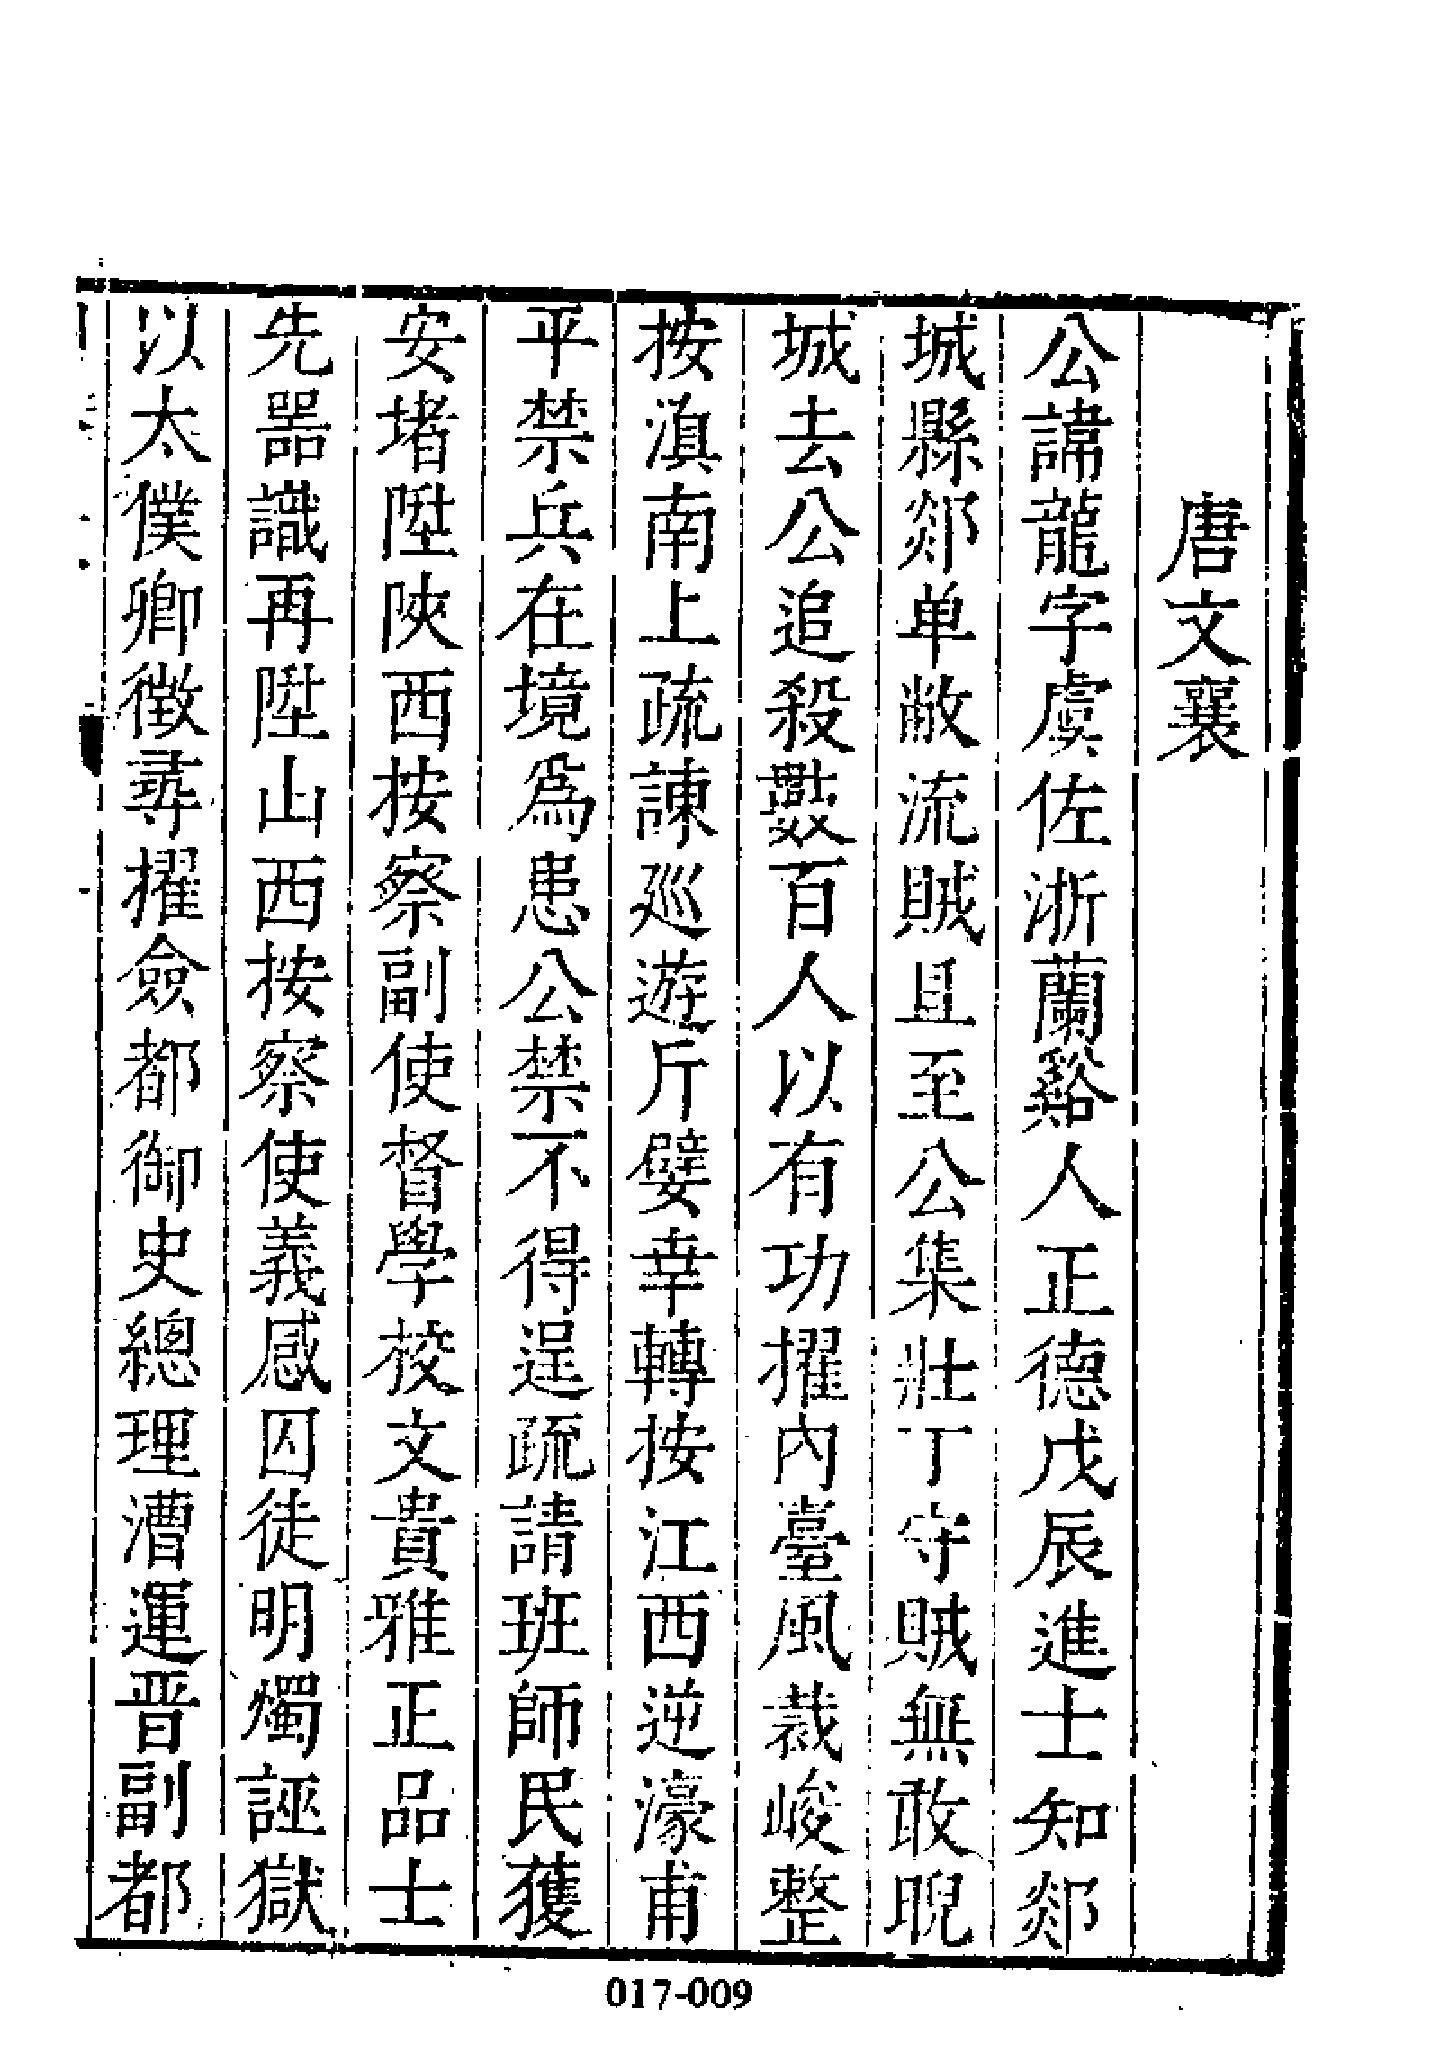 唐文襄
公諱龍字虞佐浙蘭谿人正德戊辰進士知郯
城縣郯单敝流賊且至公集壯丁守賊無敢睨
城去公追殺數百人以有功擢內臺風裁峻整
按滇南上疏諫廵遊斥嬖幸轉按江西逆濠甫
平禁兵在境爲患公禁不得逞疏請班師民獲
安堵陞陝西按察副使督學校文貴雅正品士
先器識再陞山西按察使義感囚徒明燭誣獄
以太僕卿徵尋擢僉都御史總理漕運晋副都
017-009